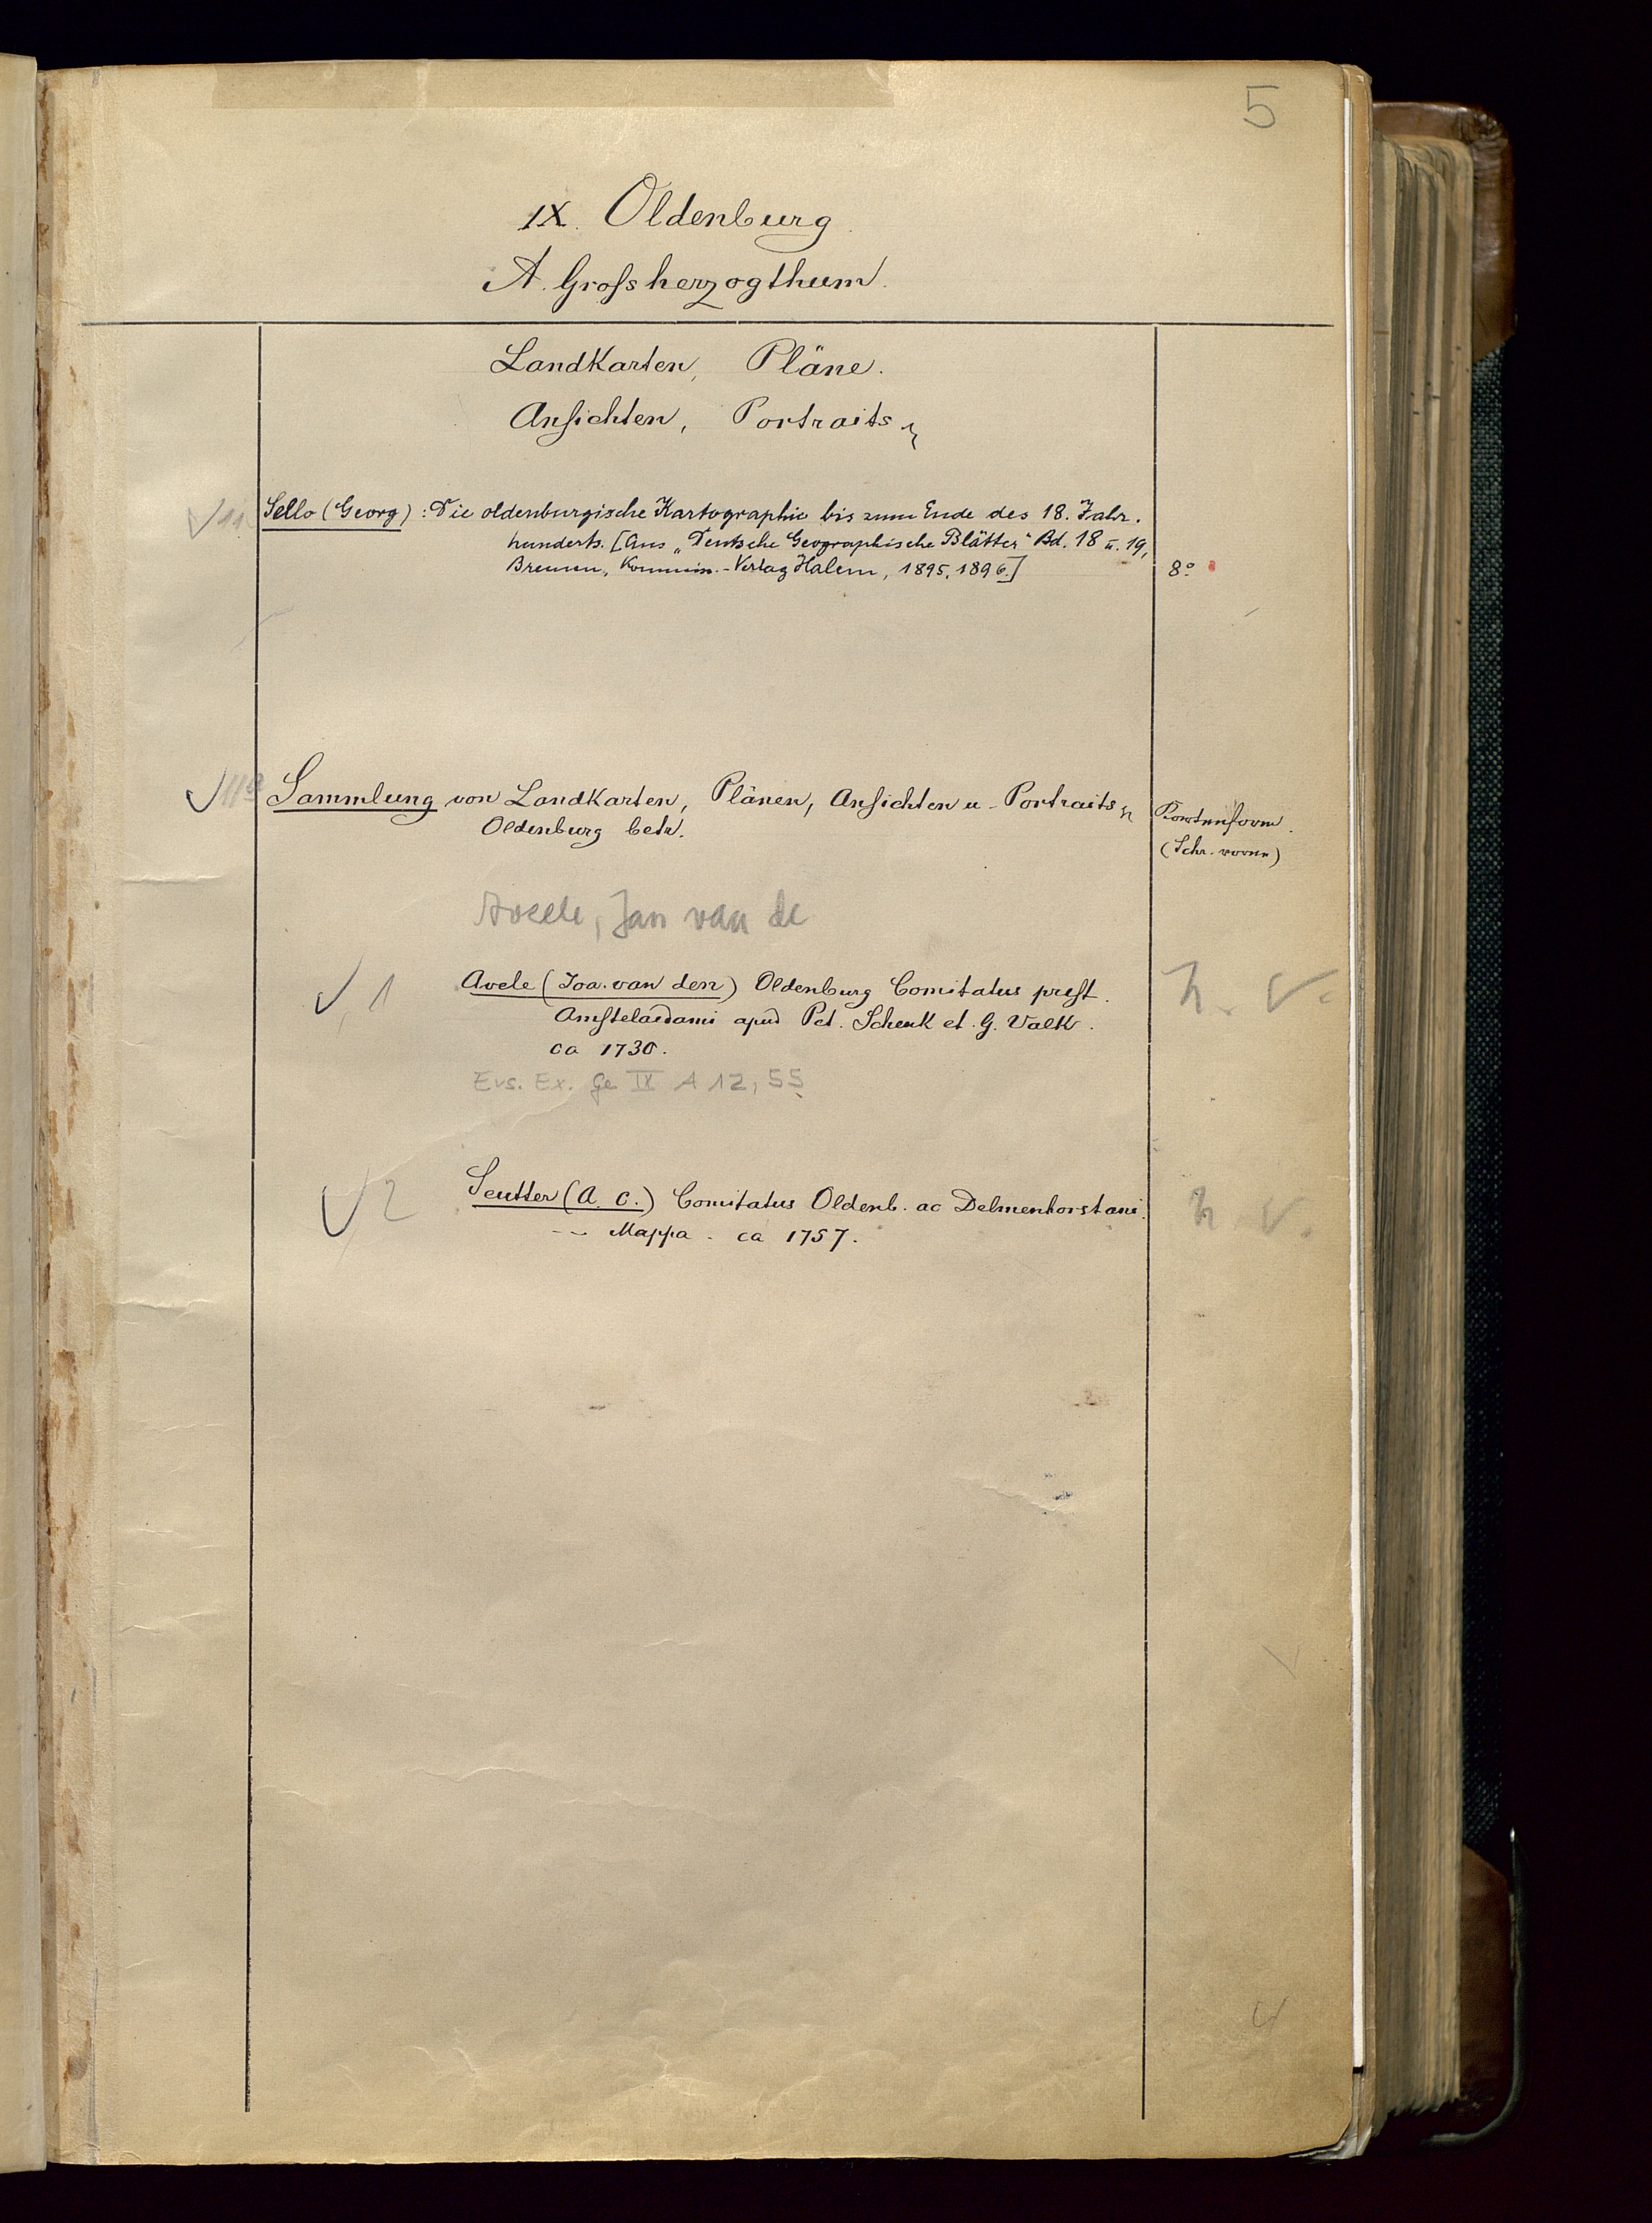 5
IX. Oldenburg.
A. Grossherzogthum.
Landkarten, Pläne.
Ansichten, Portraits
11
Sello (Georg): Die oldenburgische Kartographie bis zum Ende des 18. Jahr-
hunderts. [Aus „Deutsche Geographische Blätter“ Bd. 18 u. 19,
Bremen, Kommiss.-Verlag Halem, 1895, 1896.]
8º
Sammlung von Landkarten, Plänen, Ansichten u. Portraits
Oldenburg betr.
(Schr. vorne)
Aveele, Jan van de
1
Avele (Joa. van den) Oldenburg Comitatus prest.
Amstelaedami apud Pet. Schenk et G. Valk.
ca 1730.
h. v.
Ers. Ex. Ge IX A 12, 55
2
Seutter (A. C.) Comitatus Oldenb. ac Delmenhorstani.
-- Mappa. ca 1757.
h. v.